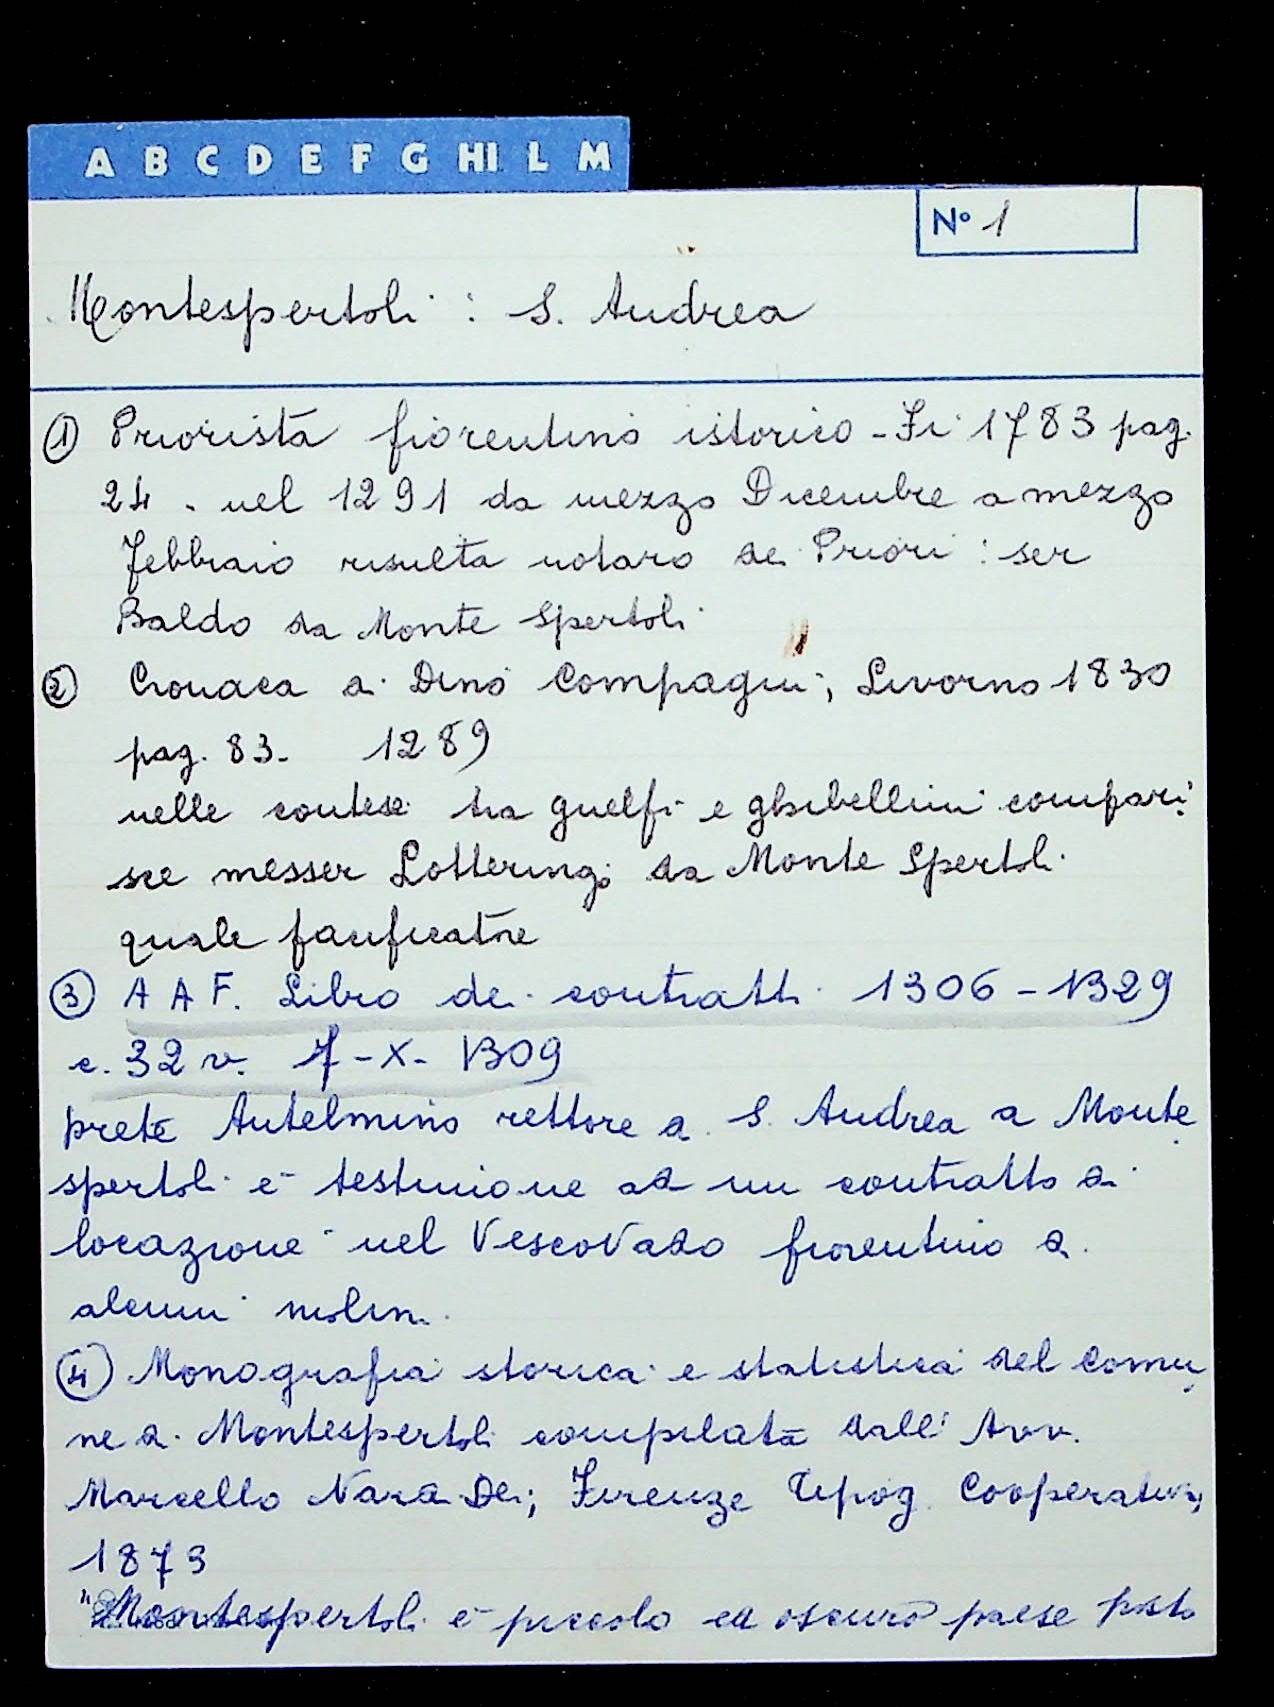 A B C D E F G HI L M
Nº 1
Montespertoli : S. Andrea
① Priorista fiorentino istorico - Fi 1783 pag.
24. nel 1291 da mezzo Dicembre a mezzo
Febbraio risulta notaro dei Priori : ser
Baldo da Monte Spertoli
② Cronaca di Dino Compagni, Livorno 1830
pag. 83. 1289
nelle contese tra guelfi e ghibellini compari
sce messer Lotteringo da Monte Spertoli
quale pacificatore
③ A A F. Libro dei contratti 1306 - 1329
c. 32 v. 7 - X - 1309
prete Antelmino rettore di S. Andrea a Monte
spertoli è testimone ad un contratto di
locazione nel Vescovado fiorentino di
alcuni molini.
④ Monografia storica e statistica del Comu
ne di Montespertoli compilata dall' Avv.
Marcello Nardi Dei; Firenze Tipog. Cooperativa,
1873
"Montespertoli è piccolo ed oscuro paese posto